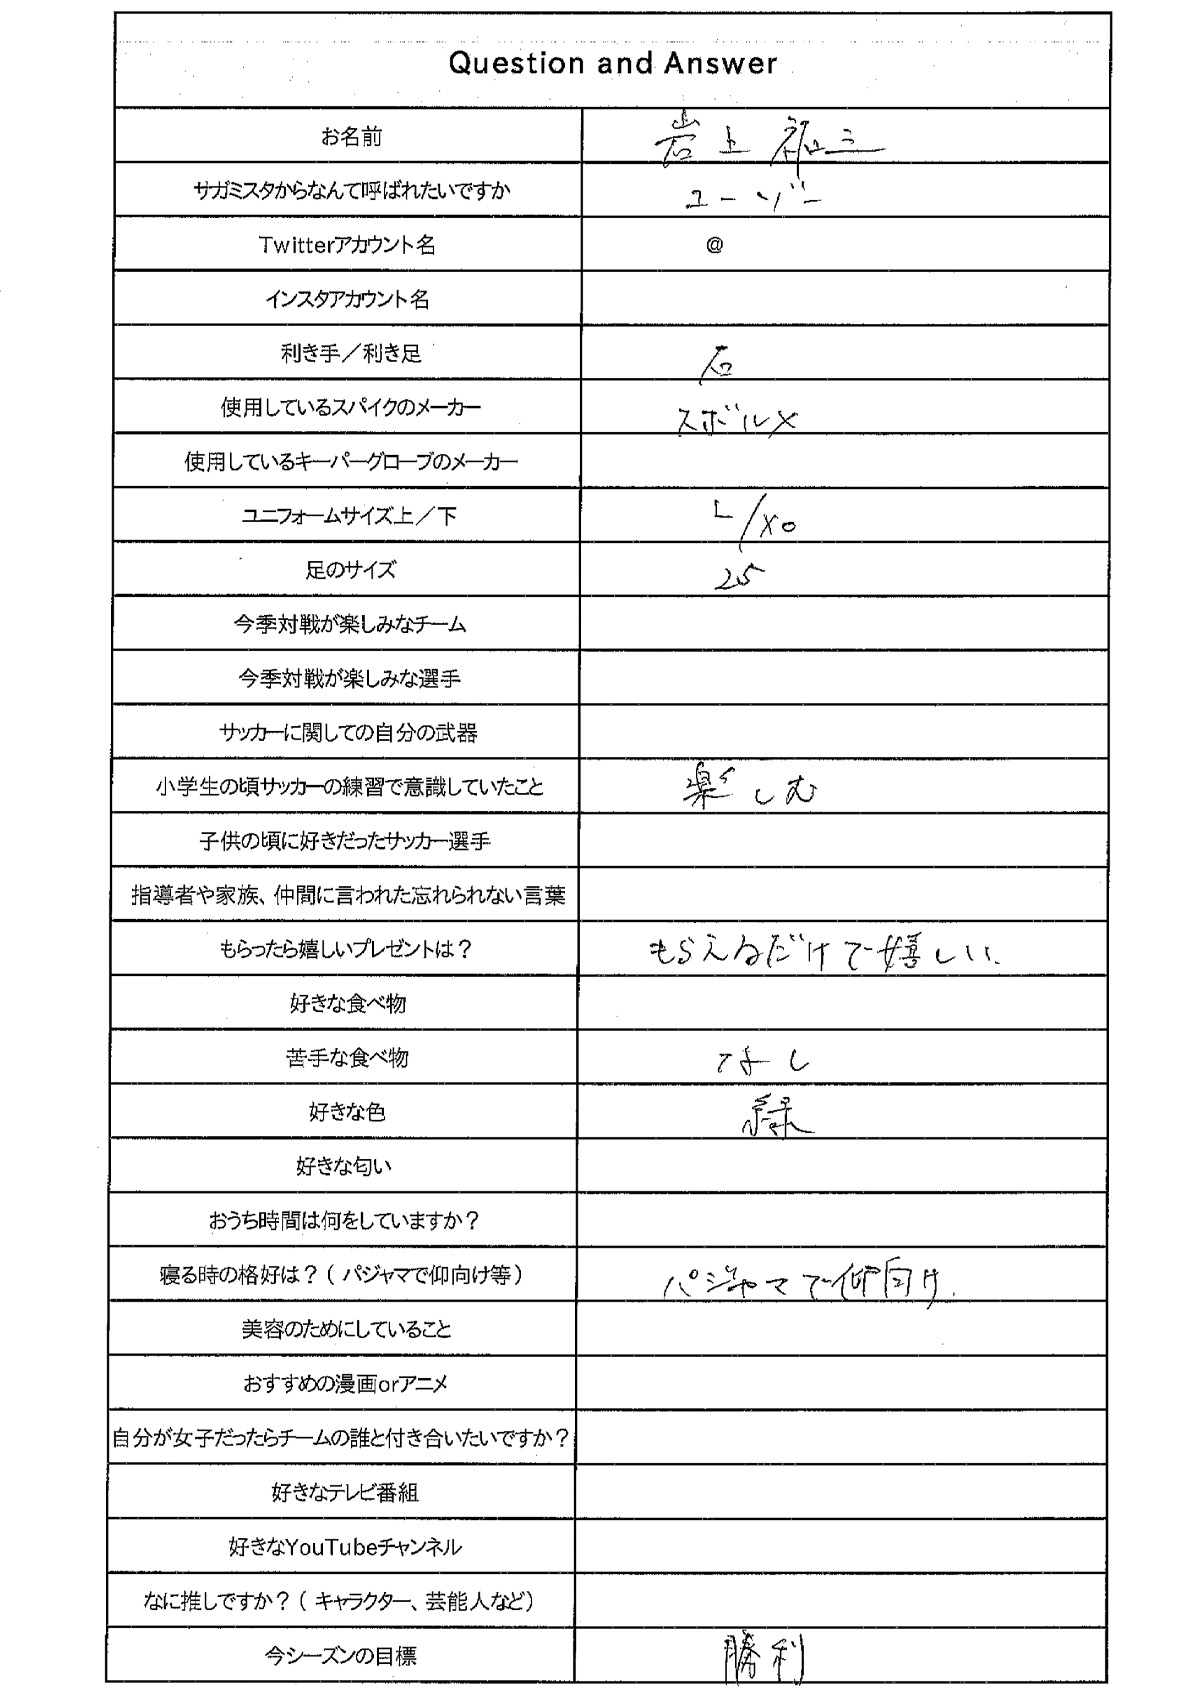 Question and Answer
お名前 岩上祐三
サガミスタからなんて呼ばれたいですか ユーゾー
Twitterアカウント名 @
インスタアカウント名
利き手／利き足 右
使用しているスパイクのメーカー スボルメ
使用しているキーパーグローブのメーカー
ユニフォームサイズ上／下 L/XO
足のサイズ 25
今季対戦が楽しみなチーム
今季対戦が楽しみな選手
サッカーに関しての自分の武器
小学生の頃サッカーの練習で意識していたこと 楽しむ
子供の頃に好きだったサッカー選手
指導者や家族、仲間に言われた忘れられない言葉
もらったら嬉しいプレゼントは？ もらえるだけで嬉しい.
好きな食べ物
苦手な食べ物 なし
好きな色 緑
好きな匂い
おうち時間は何をしていますか？
寝る時の格好は？（ パジャマで仰向け等） パジャマで仰向け.
美容のためにしていること
おすすめの漫画orアニメ
自分が女子だったらチームの誰と付き合いたいですか？
好きなテレビ番組
好きなYouTubeチャンネル
なに推しですか？（ キャラクター、芸能人など）
今シーズンの目標 勝利